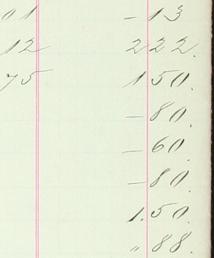 01 - 13
12 2 22.
75 1 50.
- 80.
- 60.
- 80.
1. 50.
" 88.